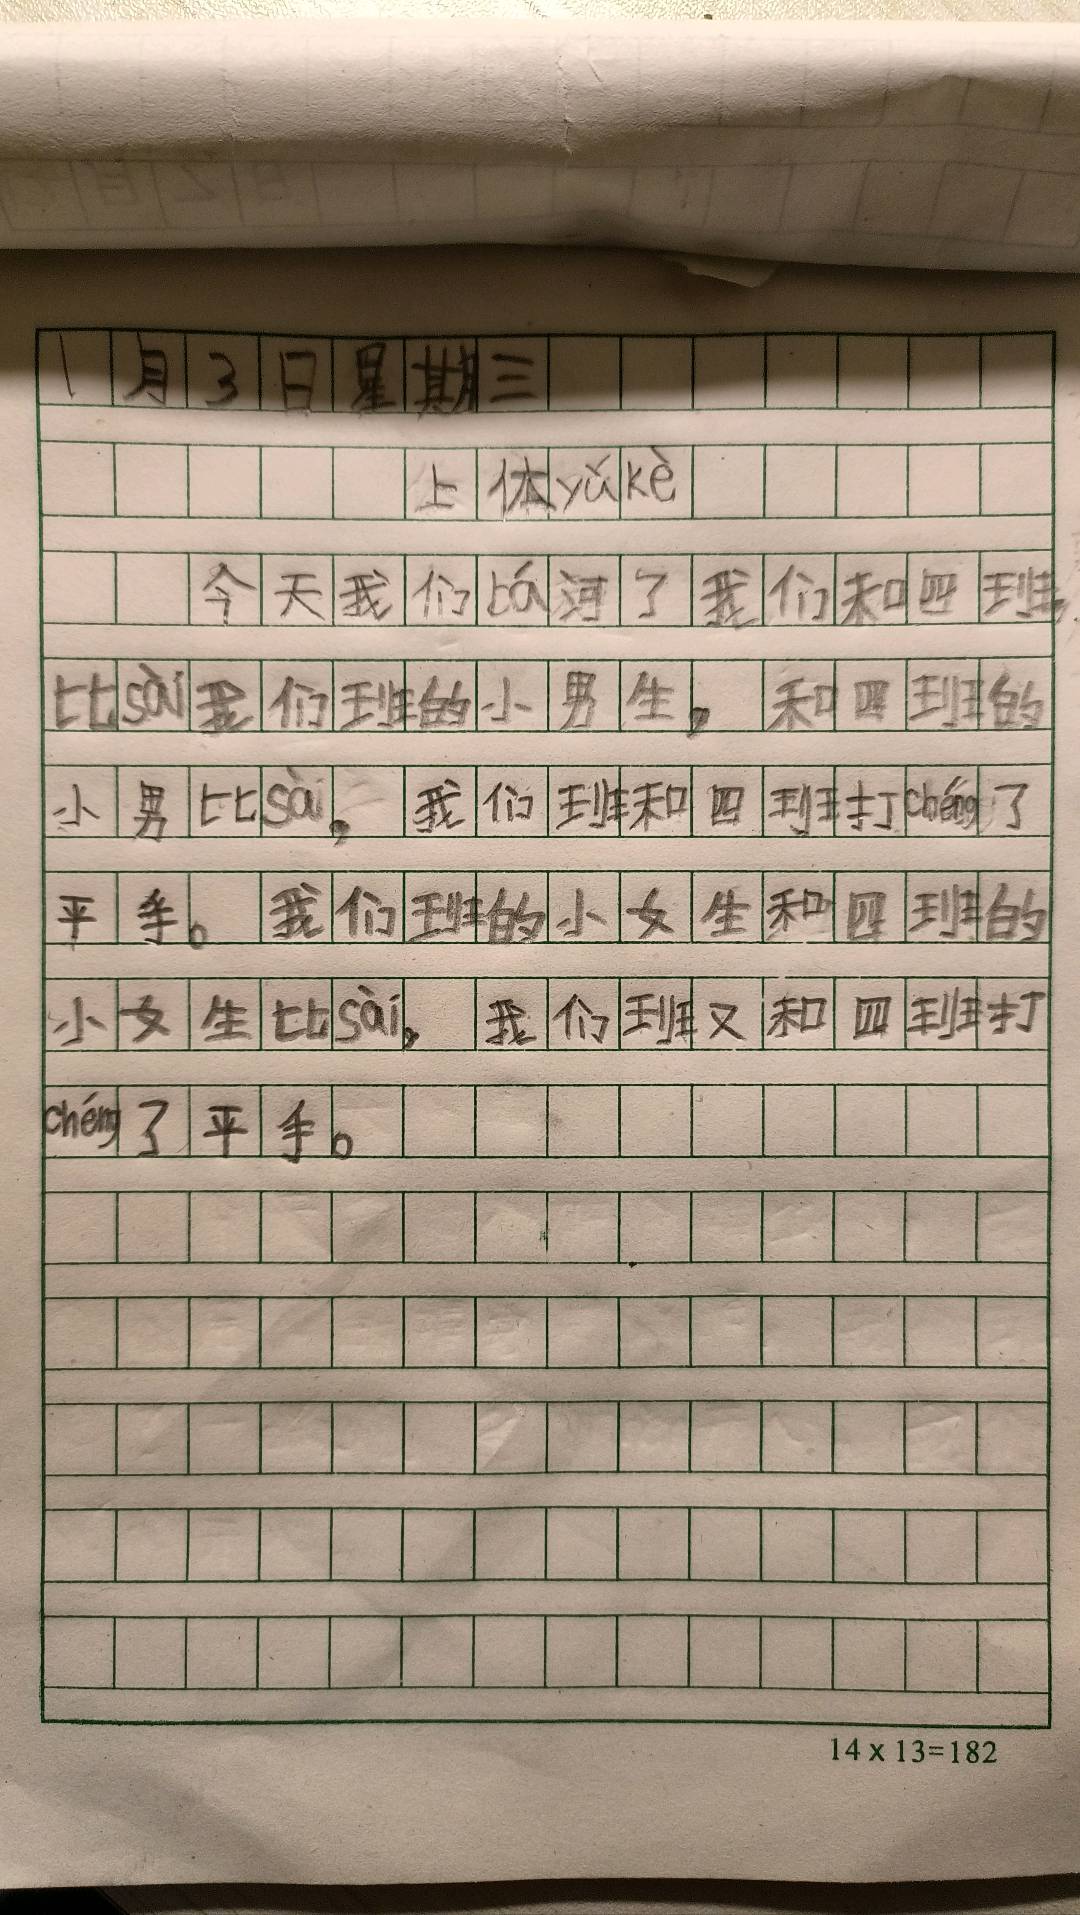 1月3日星期三
上体yǔkè
今天我们bá河了我们和四班,
比sài我们班的小男生，和四班的
小男比sài，我们班和四班打chéng了
平手。我们班的小女生和四班的
小女生比sài，我们班又和四班打
chéng了平手。
14 x 13=182